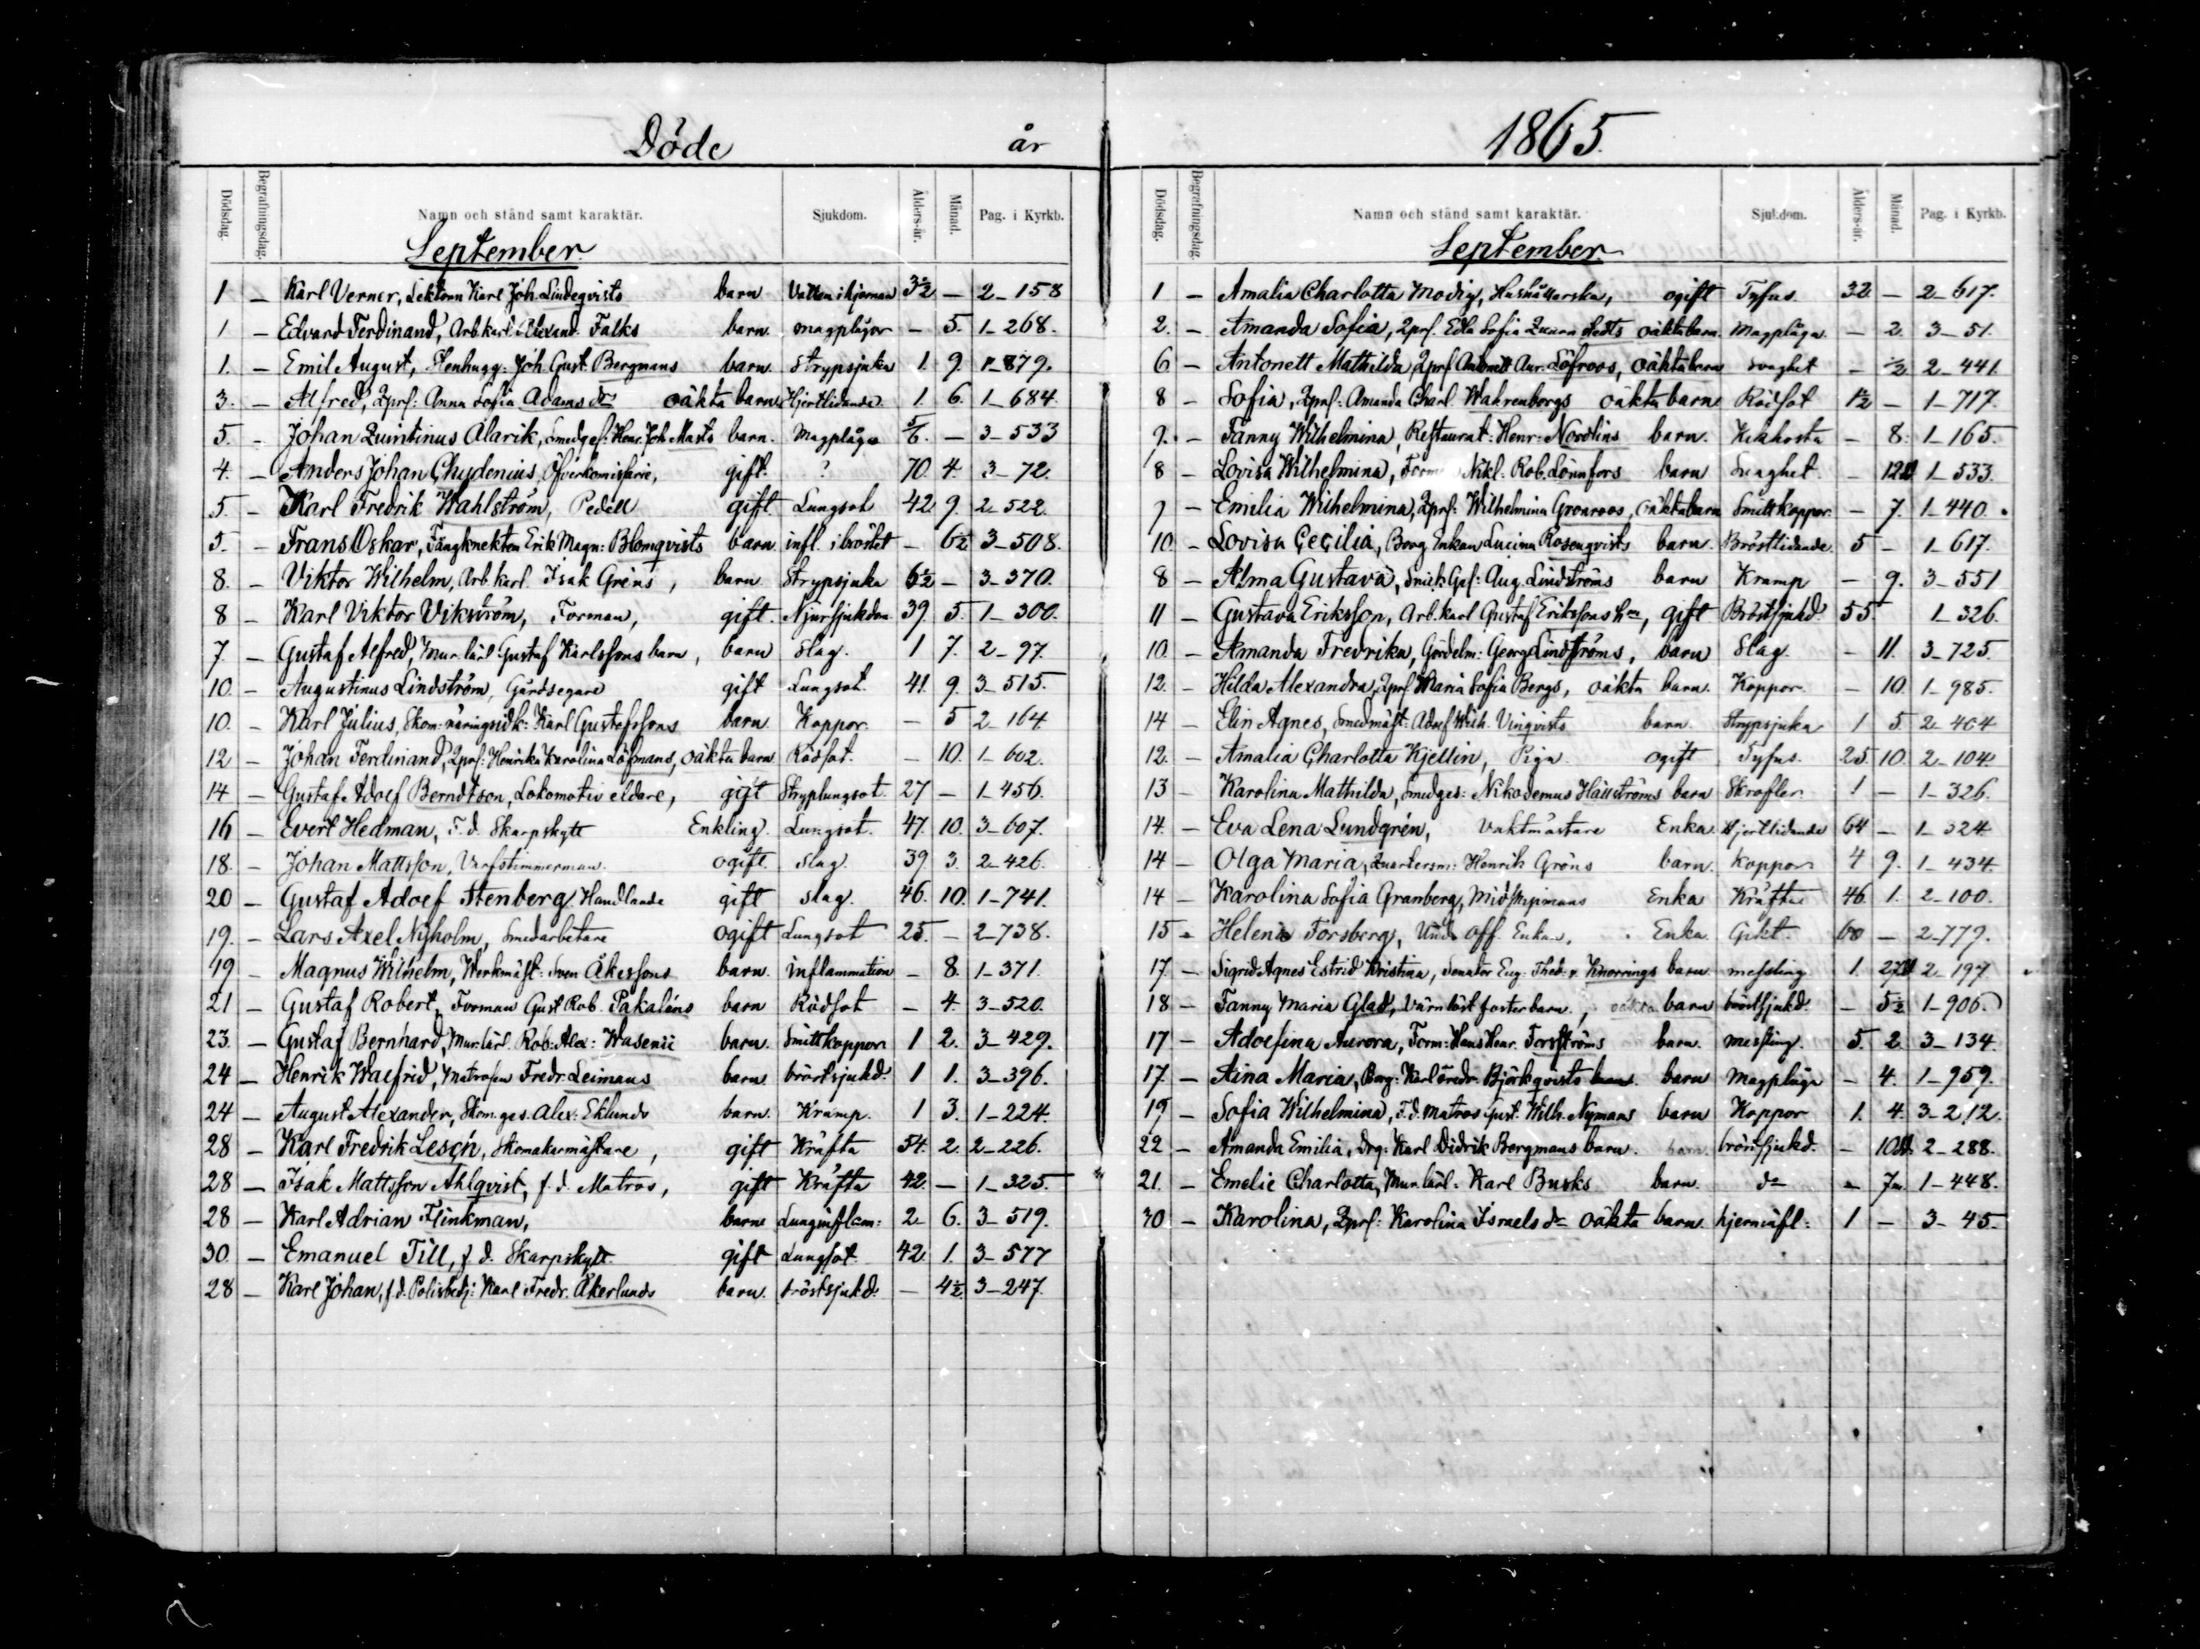 Döde år
Dödsdag. Begrafningsdag. Namn och stånd samt karaktär. Sjukdom. Ålders-år. Månad. Pag. i Kyrkb.
September
1 — Karl Verner, Lektorn Karl Joh. Lindeqvists barn Vatten i hjernan 3½ — 2-158
1 — Edvard Ferdinand, Arb.karl Alexand. Falks barn. magplågor — 5. 1-268.
1. — Emil August, Stenhugg. Joh. Gust. Bergmans barn. Strypsjuka 1. 9. 1-879.
3. — Alfred, Qprs: Anna Sofia Adams dr oäkta barn. Hjertlidande. 1. 6. 1-684.
5. — Johan Quintinus Alarik, Smedges: Henr. Joh. Masts barn. Magplågor 5/6. — 3-533
4. — Anders Johan Chydenius, Öfverkomisarie, gift. ? 70. 4. 3-72.
5. — Karl Fredrik Wahlström, Pedell gift Lungsot 42 9. 2-522
5. — Frans Oskar, Fångknekten Erik Magn: Blomqvists barn infl. i bröstet — 6½ 3-508.
8. — Viktor Wilhelm, Arb.karl. Isak Gréns, barn Strypsjuka 6½ — 3-370.
8 — Karl Viktor Vikström, Forman, gift. Njursjukdom 39. 5. 1-300.
7. — Gustaf Alfred, Mur.lärl Gustaf Karlssons barn, barn Slag. 1 7. 2-97.
10. — Augustinus Lindström, Gårdsegare gift Lungsot. 41. 9. 3-515.
10. — Karl Julius, Skom. näringsidk: Karl Gustafssons barn Koppor. — 5 2-164
12 — Johan Ferdinand, Qprs: Henrika Karolina Löfmans, oäkta barn Rödsot. — 10. 1-602.
14 — Gustaf Adolf Berndtson, Lokomotiv eldare, gift Stryplungsot 27 — 1-456.
16 — Evert Hedman, F.d. Skarpskytt Enkling. Lungsot. 47. 10. 3-607.
18. — Johan Mattsson, Varfstimmerman. ogift. Slag. 39 3. 2-426.
20 — Gustaf Adolf Stenberg Handlande gift slag. 46. 10. 1-741.
19. — Lars Axel Nyholm, Smedarbetare ogift Lungsot 25. — 2-738.
19 — Magnus Wilhelm, Werkmäst: Sven Åkessons barn. inflammation — 8. 1-371.
21 — Gustaf Robert, Forman Gust Rob. Pakaléns barn Rödsot — 4. 3-520.
23. — Gustaf Bernhard, Mur.lärl. Rob. Alex: Wasenii barn. Smittkoppor 1 2. 3-429.
24 — Henrik Walfrid, Matrosen Fredr. Leimans barn. bröstsjukd. 1 1. 3-396.
24 — August Alexander, Skom.ges. Alex: Eklunds barn. Kramp. 1 3. 1-224.
28 — Karl Fredrik Lesch, Skomakarmästare, gift Kräfta 54. 2. 2-226.
28 — Isak Mattsson Ahlqvist, f.d. Matros, gift Kräfta 42. — 1-325.
28 — Karl Adrian Flinkman, barn Lunginflam: 2 6. 3-519.
30. — Emanuel Till, f.d. Skarpskytt. gift Lungsot 42 1. 3-577
28 — Karl Johan, f.d. Polisbetj: Karl Fredr. Åkerlunds barn. bröstsjukd. — 4½ 3-247.
1865.
Dödsdag. Begrafningsdag. Namn och stånd samt karaktär. Sjukdom. Ålders-år. Månad. Pag. i Kyrkb.
September
1 — Amalia Charlotta Modig, Hushållerska, ogift Tyfus. 32 — 2-617.
2. — Amanda Sofia, Qprs. Edla Sofia Stedts oäkta barn. Magplåga — 2. 3-51.
6 — Antonett Mathilda, Qprs Antonett Aur. Löfroos, oäkta barn svaghet — ½ 2-441.
8 — Sofia, Qprs: Amanda Charl. Wahrenbergs oäkta barn Rödsot 1½ — 1-717.
9. — Fanny Wilhelmina, Restaurat: Henr: Nordlins barn. Kikhosta — 8. 1-165.
8 — Lovisa Wilhelmina, Nikl. Rob. Lönnfors barn Svaghet. — 12d 1-533.
9 — Emilia Wilhelmina, Qprs: Wilhelmina Gronroos, oäkta barn Smittkoppor. — 7. 1-440.
10. — Lovisa Cecilia, Borg. Enkan Lucina Rosenqvists barn. Bröstlidande. 5 — 1-617.
8 — Alma Gustava, Snick: Ges: Aug. Lindströms barn Kramp — 9. 3-551
11 — Gustava Eriksson, Arb.karl Gustaf Erikssons h., gift Bröstsjukd. 55. 1-326.
10. — Amanda Fredrika, Gördelm: Georg Lindströms, barn Slag. — 11. 3-725
12. — Hilda Alexandra, Qprs Maria Sofia Bergs, oäkta barn. Koppor. — 10. 1-985.
14 — Elin Agnes, Smedmäst: Adolf Wilh. Vinqvists barn Strypsjuka 1 5. 2-404
12. — Amalia Charlotta Kjellin, Piga ogift Tyfus. 25. 10. 2-104.
13 — Karolina Mathilda, Smedges: Nikodemus Hällströms barn Skrofler 1 — 1-326.
14. — Eva Lena Lundgrén, Vaktmästare Enka. Hjertlidande 64 — 1-324
14 — Olga Maria, Quartersm: Henrik Gröns barn. koppor 4 9. 1-434.
14 — Karolina Sofia Granberg, Midskipmans Enka Kräfta 46. 1. 2-100.
15 — Helena Forsberg, Und. off. Enka. Enka Gikt. 60 — 2-779.
17. — Sigrid Agnes Estrid Kristina, Senator Eug. Theod. v. Knorrings barn. messling 1. 27d 2-197
18 — Fanny Maria Glad, Värnlöst fosterbarn, oäkta barn bröstsjukd. — 5½ 1-906.
17 — Adolfina Aurora, Form: Hans Henr. Forsströms barn. messling. 5. 2. 3-134.
17. — Aina Maria, Borg: Karl Fredr. Björkqvists barn. barn Magplåga — 4. 1-959.
19 — Sofia Wilhelmina, F.d. Matros Gust. Wilh. Nymans barn Koppor 1. 4. 3-212.
22 — Amanda Emilia, Drg: Karl Didrik Bergmans barn. barn. bröstsjukd. — 10d. 2-288.
21. — Emelie Charlotta, Mur.lärl: Karl Busks barn. do — 7m. 1-448.
30 — Karolina, Qprs: Karolina Israels dr oäkta barn. hjerninfl: 1 — 3-45.